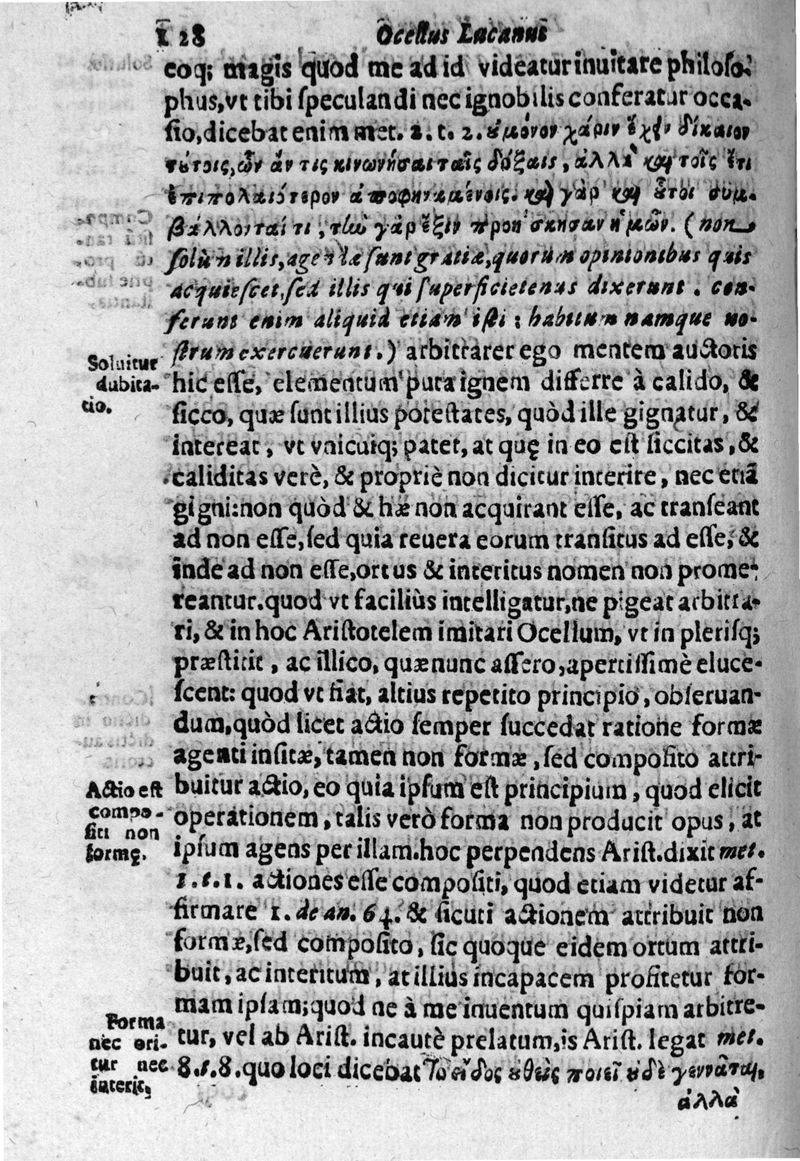 128 Ocellus Lucanus
eoq; magis quod me ad id videatur inuitare philoso-
phus, vt tibi speculandi nec ignobilis conferatur occa-
sio, dicebat enim met. 2. t. 2. ȣ̓ μόνον χάριν ἔχειν δίκαιον
τȣ́τοις, ὧν ἄν τις κινωνήσαι ταῖς δόξαις, ἀλλὰ καὶ τοῖς ἔτι
ἐπιπολαιότερον ἀποφηναμένοις. καὶ γὰρ καὶ ȣ̃τοι συμ-
βάλλονταί τι, τὼ γὰρ ἕξιν προήσκησαν ἡμῶν. (non
solùm illis, agendæ sunt gratiæ, quorum opinionibus quis
acquiescet, sed illis qui superficietenus dixerunt. con-
ferunt enim aliquid etiam isti: habitum namque no-
strum exercuerunt.) arbitrarer ego mentem auctoris
Soluitur
dubita-
tio.
hic esse, elementum puta ignem differre à calido, &
sicco, quæ sunt illius potestates, quòd ille gignatur, &
intereat, vt vnicuiq; patet, at quę in eo est siccitas, &
caliditas verè, & propriè non dicitur interire, nec etiã
gigni: non quòd & hæ non acquirant esse, ac transeant
ad non esse, sed quia reuera eorum transitus ad esse, &
inde ad non esse, ortus & interitus nomen non prome-
reantur. quod vt faciliùs intelligatur, ne pigeat arbitra-
ri, & in hoc Aristotelem imitari Ocellum, vt in plerisq;
præstitit, ac illico, quæ nunc assero, apertissimè eluce-
scent: quod vt fiat, altius repetito principio, obseruan-
dum, quòd licet actio semper succedat ratione formæ
agenti insitæ, tamen non formæ, sed composito attri-
Actio est
compo-
siti non
formę.
buitur actio, eo quia ipsum est principium, quod elicit
operationem, talis verò forma non producit opus, at
ipsum agens per illam. hoc perpendens Arist. dixit met.
1. s. 1. actiones esse compositi, quod etiam videtur af-
firmare 1. de an. 64. & sicuti actionem attribuit non
formæ, sed composito, sic quoque eidem ortum attri-
buit, ac interitum, at illius incapacem profitetur for-
mam ipsam; quod ne à me inuentum quispiam arbitre-
Forma
nec ori-
tur nec
interit.
tur, vel ab Arist. incautè prelatum, is Arist. legat met.
8. s. 8. quo loci dicebat Τὸ εἶδος ȣ̓θεὶς ποιεῖ ȣ̓δὲ γεννᾶται,
ἀλλὰ